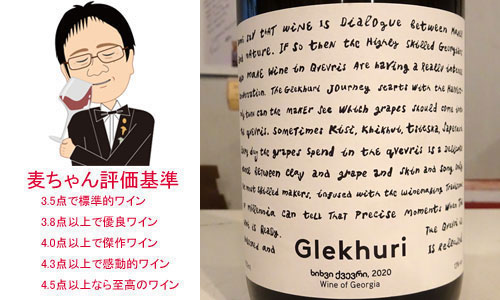 麦ちゃん評価基準
3.5点で標準的ワイン
3.8点以上で優良ワイン
4.0点以上で傑作ワイン
4.3点以上で感動的ワイン
4.5点以上なら至高のワイン
say THAT WINE is DiaLogue between
nature. IF so THEN the HigHly Skilled Georgians
make Wine in Qvevris Are having a Really intense
The Glekhuri journey starts with the Harvest
can the maker see which grapes should come
qvevris. Sometimes Kisi, Khikhvi, Tsitska, Saperavi
day the grapes spend in the qvevris is a
between clay and grape and skin and song. Only
most skilled makers, infused with the winemaking Traditions
millennia can tell That Precise Moments When The
is Ready. The Qvevri is
and is Released
Glekhuri
ხიხვი ქვევრი, 2020
Wine of Georgia